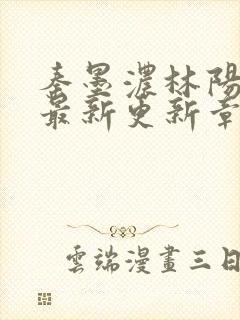 秦墨濃林陽
最新更新章
雲端漫畫三日